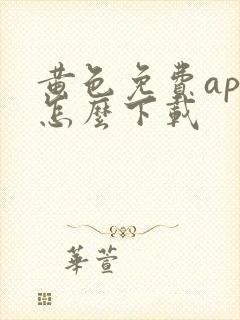 黄色免費ap
怎麼下載
華萱